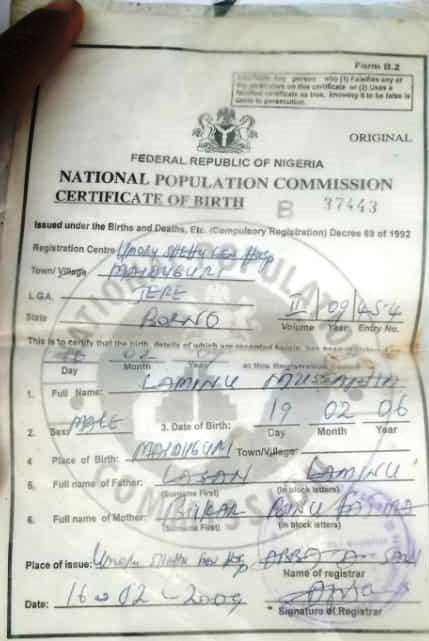 Form B.2
person who (1) Falsifies any of
on this certificate or (2) Uses a
falsified certificate as true, knowing it to be false is
ORIGINAL
FEDERAL REPUBLIC OF NIGERIA
NATIONAL POPULATION COMMISSION
CERTIFICATE OF BIRTH B 37443
Issued under the Births and Deaths, Etc. (Compulsory Registration) Decree 69 of 1992
Registration Centre
Town/ Village MAIDUGURI
L.G.A. JERE III 09 454
State BORNO Volume Year Entry No.
This is to certify that the birth, details of which are recorded herein, has been
16 02 09
Day Month Year at this Registration
1. Full Name: LAMINU
2. Sex MALE 3. Date of Birth: 19 02 06
Day Month Year
4 Place of Birth: MAIDUGURI Town/Village:
5. Full name of Father: LASAN LAMINU
(Surname First) (In block letters)
6. Full name of Mother: BUKAR FATIMA
(Surname First) (In block letters)
Place of issue:
Name of registrar
Date: 16-02-2009
Signature of Registrar
NATIONAL POPULATION COMMISSION